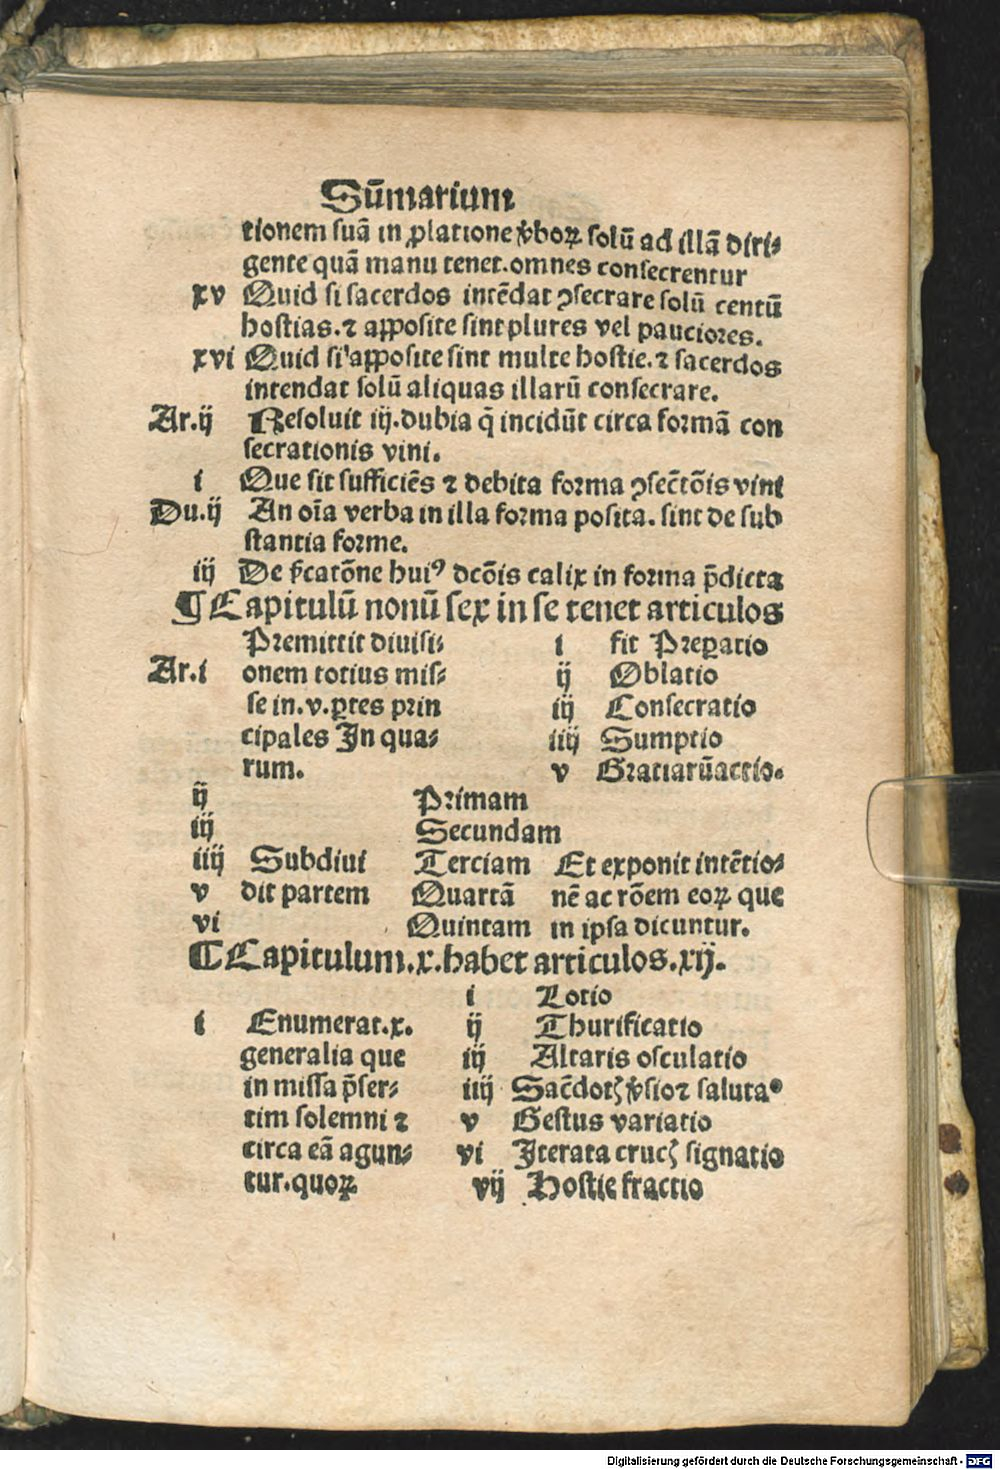 Sūmarium
tionem suā in ꝓlatione v̄boꝝ solū ad illā diri⸗
gente quā manu tenet. omnes consecrentur
xv Quid si sacerdos intēdat ꝯsecrare solū centū
hostias. ⁊ apposite sint plures vel pauciores.
xvi Quid si apposite sint multe hostie. ⁊ sacerdos
intendat solū aliquas illarū consecrare.
Ar.ij Resoluit iij. dubia q̄ incidūt circa formā con
secrationis vini.
i Que sit sufficiēs ⁊ debita forma ꝯsec̄tōis vini
Du.ij An oīa verba in illa forma posita. sint de sub
stantia forme.
iij De s̄catōne huiꝰ dcōis calix in forma p̄dicta
¶ Capitulū nonū sex in se tenet articulos
Premittit diuisi⸗ i fit Preꝑatio
Ar.i onem totius mis⸗ ij Oblatio
se in. v. ꝑtes prin iij Consecratio
cipales In qua⸗ iiij Sumptio
rum. v Gratiarūactio.
ij Primam
iij Secundam
iiij Subdiui Terciam Et exponit intētio⸗
v dit partem Quartā nē ac rōem eoꝝ que
vi Quintam in ipsa dicuntur.
¶ Capitulum. x. habet articulos. xij.
i Lotio
i Enumerat. x. ij Thurificatio
generalia que iij Altaris osculatio
in missa p̄ser⸗ iiij Sac̄dotꝭ v̄sio⁊ saluta•
tim solemni ⁊ v Gestus variatio
circa eā agun⸗ vi Iterata crucꝭ signatio
tur. quoꝝ vij Hostie fractio
Digitalisierung gefördert durch die Deutsche Forschungsgemeinschaft - DFG